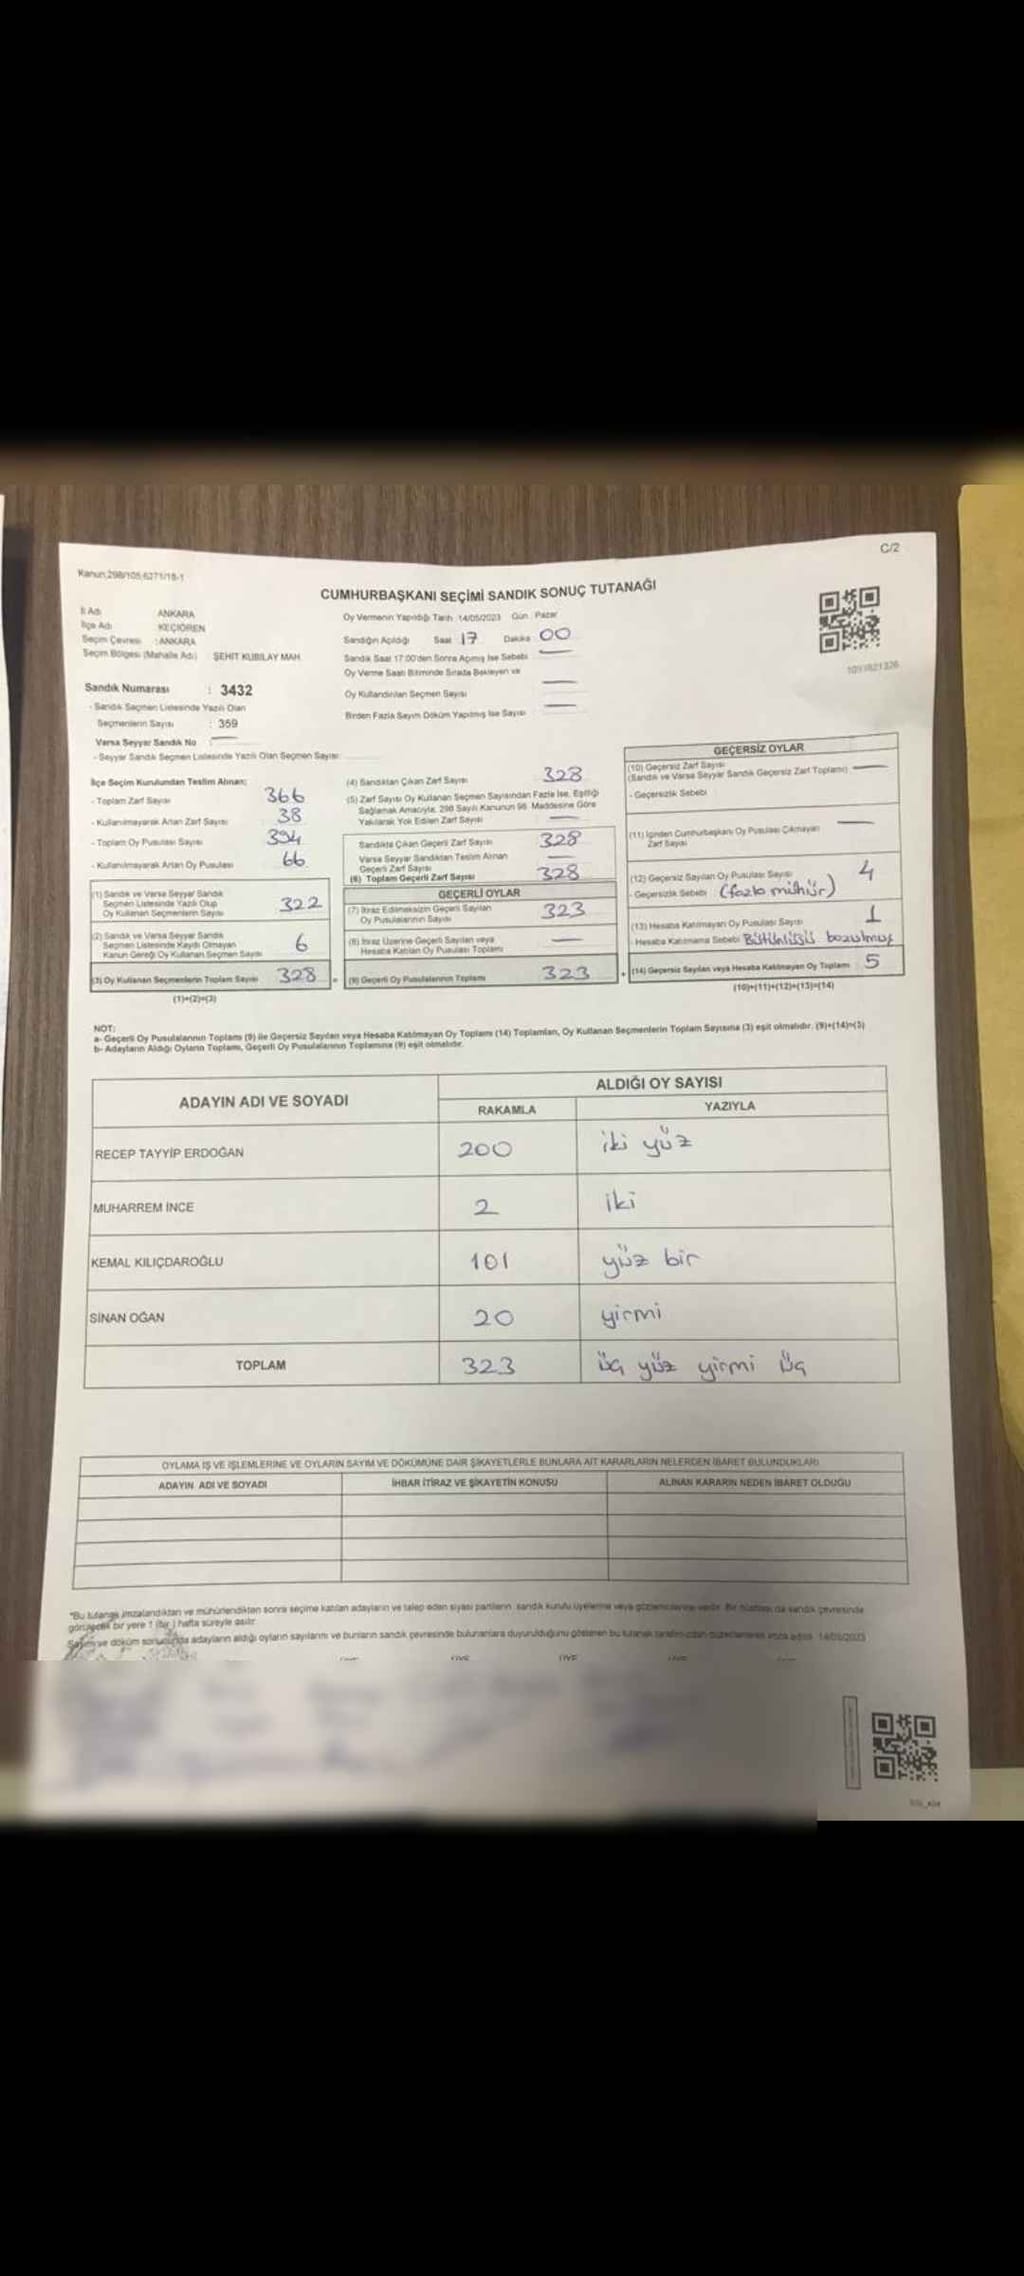 C/2
Kanun:298/105;6271/18-1
CUMHURBAŞKANI SEÇİMİ SANDIK SONUÇ TUTANAĞI
İl Adı ANKARA
İlçe Adı KEÇİÖREN
Seçim Çevresi : ANKARA
Seçim Bölgesi (Mahalle Adı) ŞEHİT KUBİLAY MAH.
Sandık Numarası : 3432
- Sandık Seçmen Listesinde Yazılı Olan
Seçmenlerin Sayısı : 359
Varsa Seyyar Sandık No :
- Seyyar Sandık Seçmen Listesinde Yazılı Olan Seçmen Sayısı:
Oy Vermenin Yapıldığı Tarih 14/05/2023 Gün : Pazar
Sandığın Açıldığı Saat 17 Dakika 00
Sandık Saat 17:00'den Sonra Açımış İse Sebebi
Oy Verme Saati Bitiminde Sırada Bekleyen ve
Oy Kullandırılan Seçmen Sayısı
Birden Fazla Sayım Döküm Yapılmış İse Sayısı
İlçe Seçim Kurulundan Teslim Alınan;
- Toplam Zarf Sayısı 366
- Kullanılmayarak Artan Zarf Sayısı 38
- Toplam Oy Pusulası Sayısı 394
- Kullanılmayarak Artan Oy Pusulası 66
(1) Sandık ve Varsa Seyyar Sandık
Seçmen Listesinde Yazılı Olup
Oy Kullanan Seçmenlerin Sayısı 322
(2) Sandık ve Varsa Seyyar Sandık
Seçmen Listesinde Kaydı Olmayan
Kanun Gereği Oy Kullanan Seçmen Sayısı 6
(3) Oy Kullanan Seçmenlerin Toplam Sayısı 328
(1)+(2)=(3)
(4) Sandıktan Çıkan Zarf Sayısı 328
(5) Zarf Sayısı Oy Kullanan Seçmen Sayısından Fazla İse, Eşitliği
Sağlamak Amacıyla, 298 Sayılı Kanunun 98. Maddesine Göre
Yakılarak Yok Edilen Zarf Sayısı
Sandıkta Çıkan Geçerli Zarf Sayısı 328
Varsa Seyyar Sandıktan Teslim Alınan
Geçerli Zarf Sayısı
(6) Toplam Geçerli Zarf Sayısı 328
GEÇERLİ OYLAR
(7) İtiraz Edilmeksizin Geçerli Sayılan
Oy Pusulalarının Sayısı 323
(8) İtiraz Üzerine Geçerli Sayılan veya
Hesaba Katılan Oy Pusulası Toplamı
(9) Geçerli Oy Pusulalarının Toplamı 323
GEÇERSİZ OYLAR
(10) Geçersiz Zarf Sayısı
(Sandık ve Varsa Seyyar Sandık Geçersiz Zarf Toplamı)
- Geçersizlik Sebebi
(11) İçinden Cumhurbaşkanı Oy Pusulası Çıkmayan
Zarf Sayısı
(12) Geçersiz Sayılan Oy Pusulası Sayısı 4
- Geçersizlik Sebebi (fazla mühür)
(13) Hesaba Katılmayan Oy Pusulası Sayısı 1
- Hesaba Katılmama Sebebi Bütünlüğü bozulmuş
(14) Geçersiz Sayılan veya Hesaba Katılmayan Oy Toplamı 5
(10)+(11)+(12)+(13)=(14)
NOT:
a- Geçerli Oy Pusulalarının Toplamı (9) ile Geçersiz Sayılan veya Hesaba Katılmayan Oy Toplamı (14) Toplamları, Oy Kullanan Seçmenlerin Toplam Sayısına (3) eşit olmalıdır. (9)+(14)=(3)
b- Adayların Aldığı Oyların Toplamı, Geçerli Oy Pusulalarının Toplamına (9) eşit olmalıdır.
ADAYIN ADI VE SOYADI ALDIĞI OY SAYISI
RAKAMLA YAZIYLA
RECEP TAYYİP ERDOĞAN 200 iki yüz
MUHARREM İNCE 2 iki
KEMAL KILIÇDAROĞLU 101 yüz bir
SİNAN OĞAN 20 yirmi
TOPLAM 323 üç yüz yirmi üç
OYLAMA İŞ VE İŞLEMLERİNE VE OYLARIN SAYIM VE DÖKÜMÜNE DAİR ŞİKAYETLERLE BUNLARA AİT KARARLARIN NELERDEN İBARET BULUNDUKLARI
ADAYIN ADI VE SOYADI İHBAR İTİRAZ VE ŞİKAYETİN KONUSU ALINAN KARARIN NEDEN İBARET OLDUĞU
*Bu tutanak imzalandıktan ve mühürlendikten sonra seçime katılan adayların ve talep eden siyasi partilerin sandık kurulu üyelerine veya gözlemcilerine verilir. Bir nüshası da sandık çevresinde
görülecek bir yere 1 (bir) hafta süreyle asılır.
Sayım ve döküm sonucunda adayların aldığı oyların sayılarını ve bunların sandık çevresinde bulunanlara duyurulduğunu gösteren bu tutanak 14/05/2023